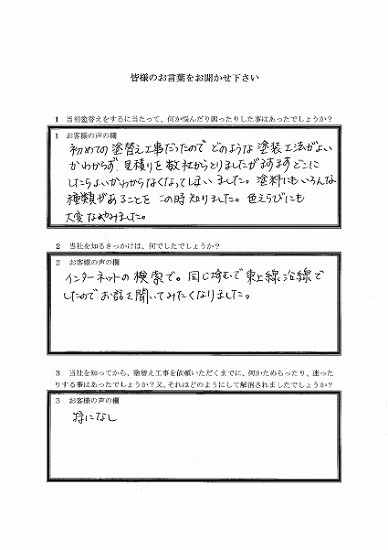 皆様のお言葉をお聞かせ下さい
1 当初塗替えをするに当たって、何か悩んだり困ったりした事はあったでしょうか？
1 お客様の声の欄
初めての塗替え工事だったので どのような塗装工法がよい
かわからず、見積りを数社からとりましたがますますどこに
したらよいかわからなくなってしまいました。塗料にもいろんな
種類があることを この時知りました。色えらびにも
大変なやみました。
2 当社を知るきっかけは、何でしたでしょうか？
2 お客様の声の欄
インターネットの検索で。同じ埼玉で東上線沿線で
したのでお話を聞いてみたくなりました。
3 当社を知ってから、塗替え工事を依頼いただくまでに、何かためらったり、迷った
りする事はあったでしょうか？又、それはどのようにして解消されましたでしょうか？
3 お客様の声の欄
特になし